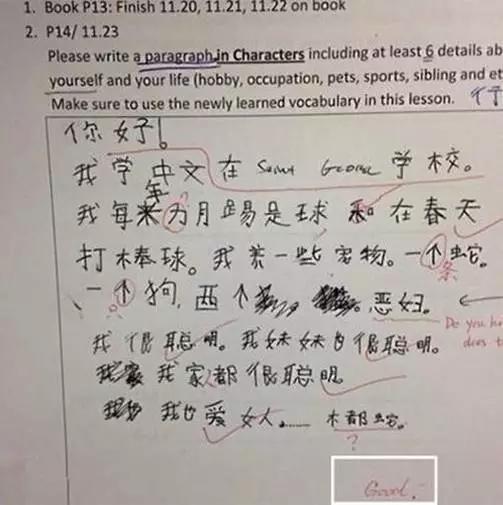 1. Book P13: Finish 11.20, 11.21, 11.22 on book
2. P14/ 11.23
Please write a paragraph in Characters including at least 6 details ab
yourself and your life (hobby, occupation, pets, sports, sibling and et
Make sure to use the newly learned vocabulary in this lesson.
你好!
我学中文在 Saint George 学校。
年
我每 月踢是球 和 在春天
打棒球。我养一些宠物。一个蛇。
条
一个狗,两个 。恶妇。
Do you
does
我很聪明。我妹妹也很聪明。
我家都很聪明。
我也爱女人…… 木都蛇。
?
Good.